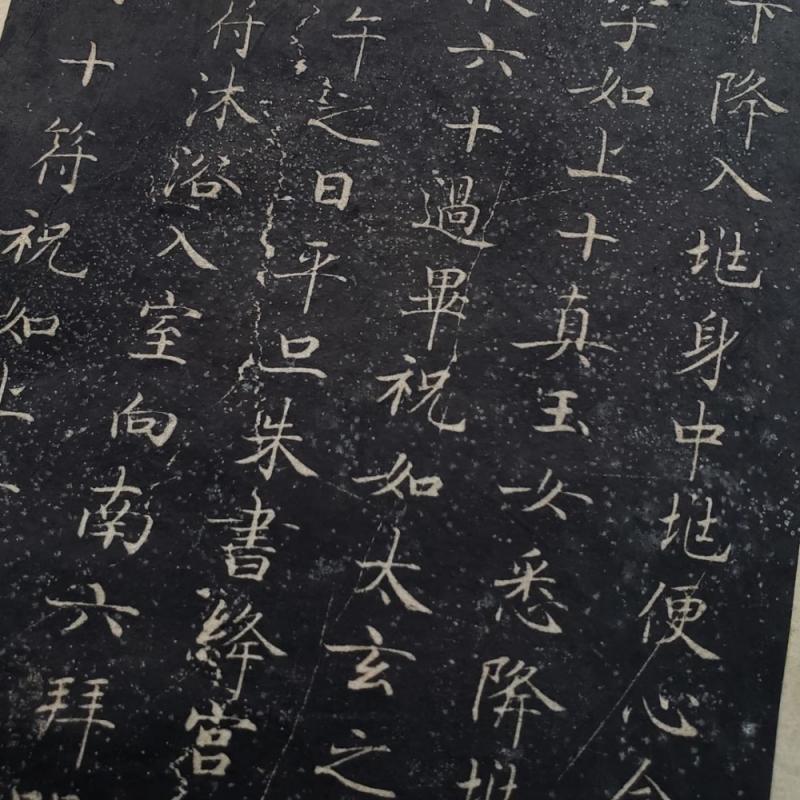 下降入兆身中兆便心念
字如上十真玉女悉降兆
六十過畢祝如太玄之
午之日平旦朱書絳宮
符沐浴入室向南六拜
十符祝如上